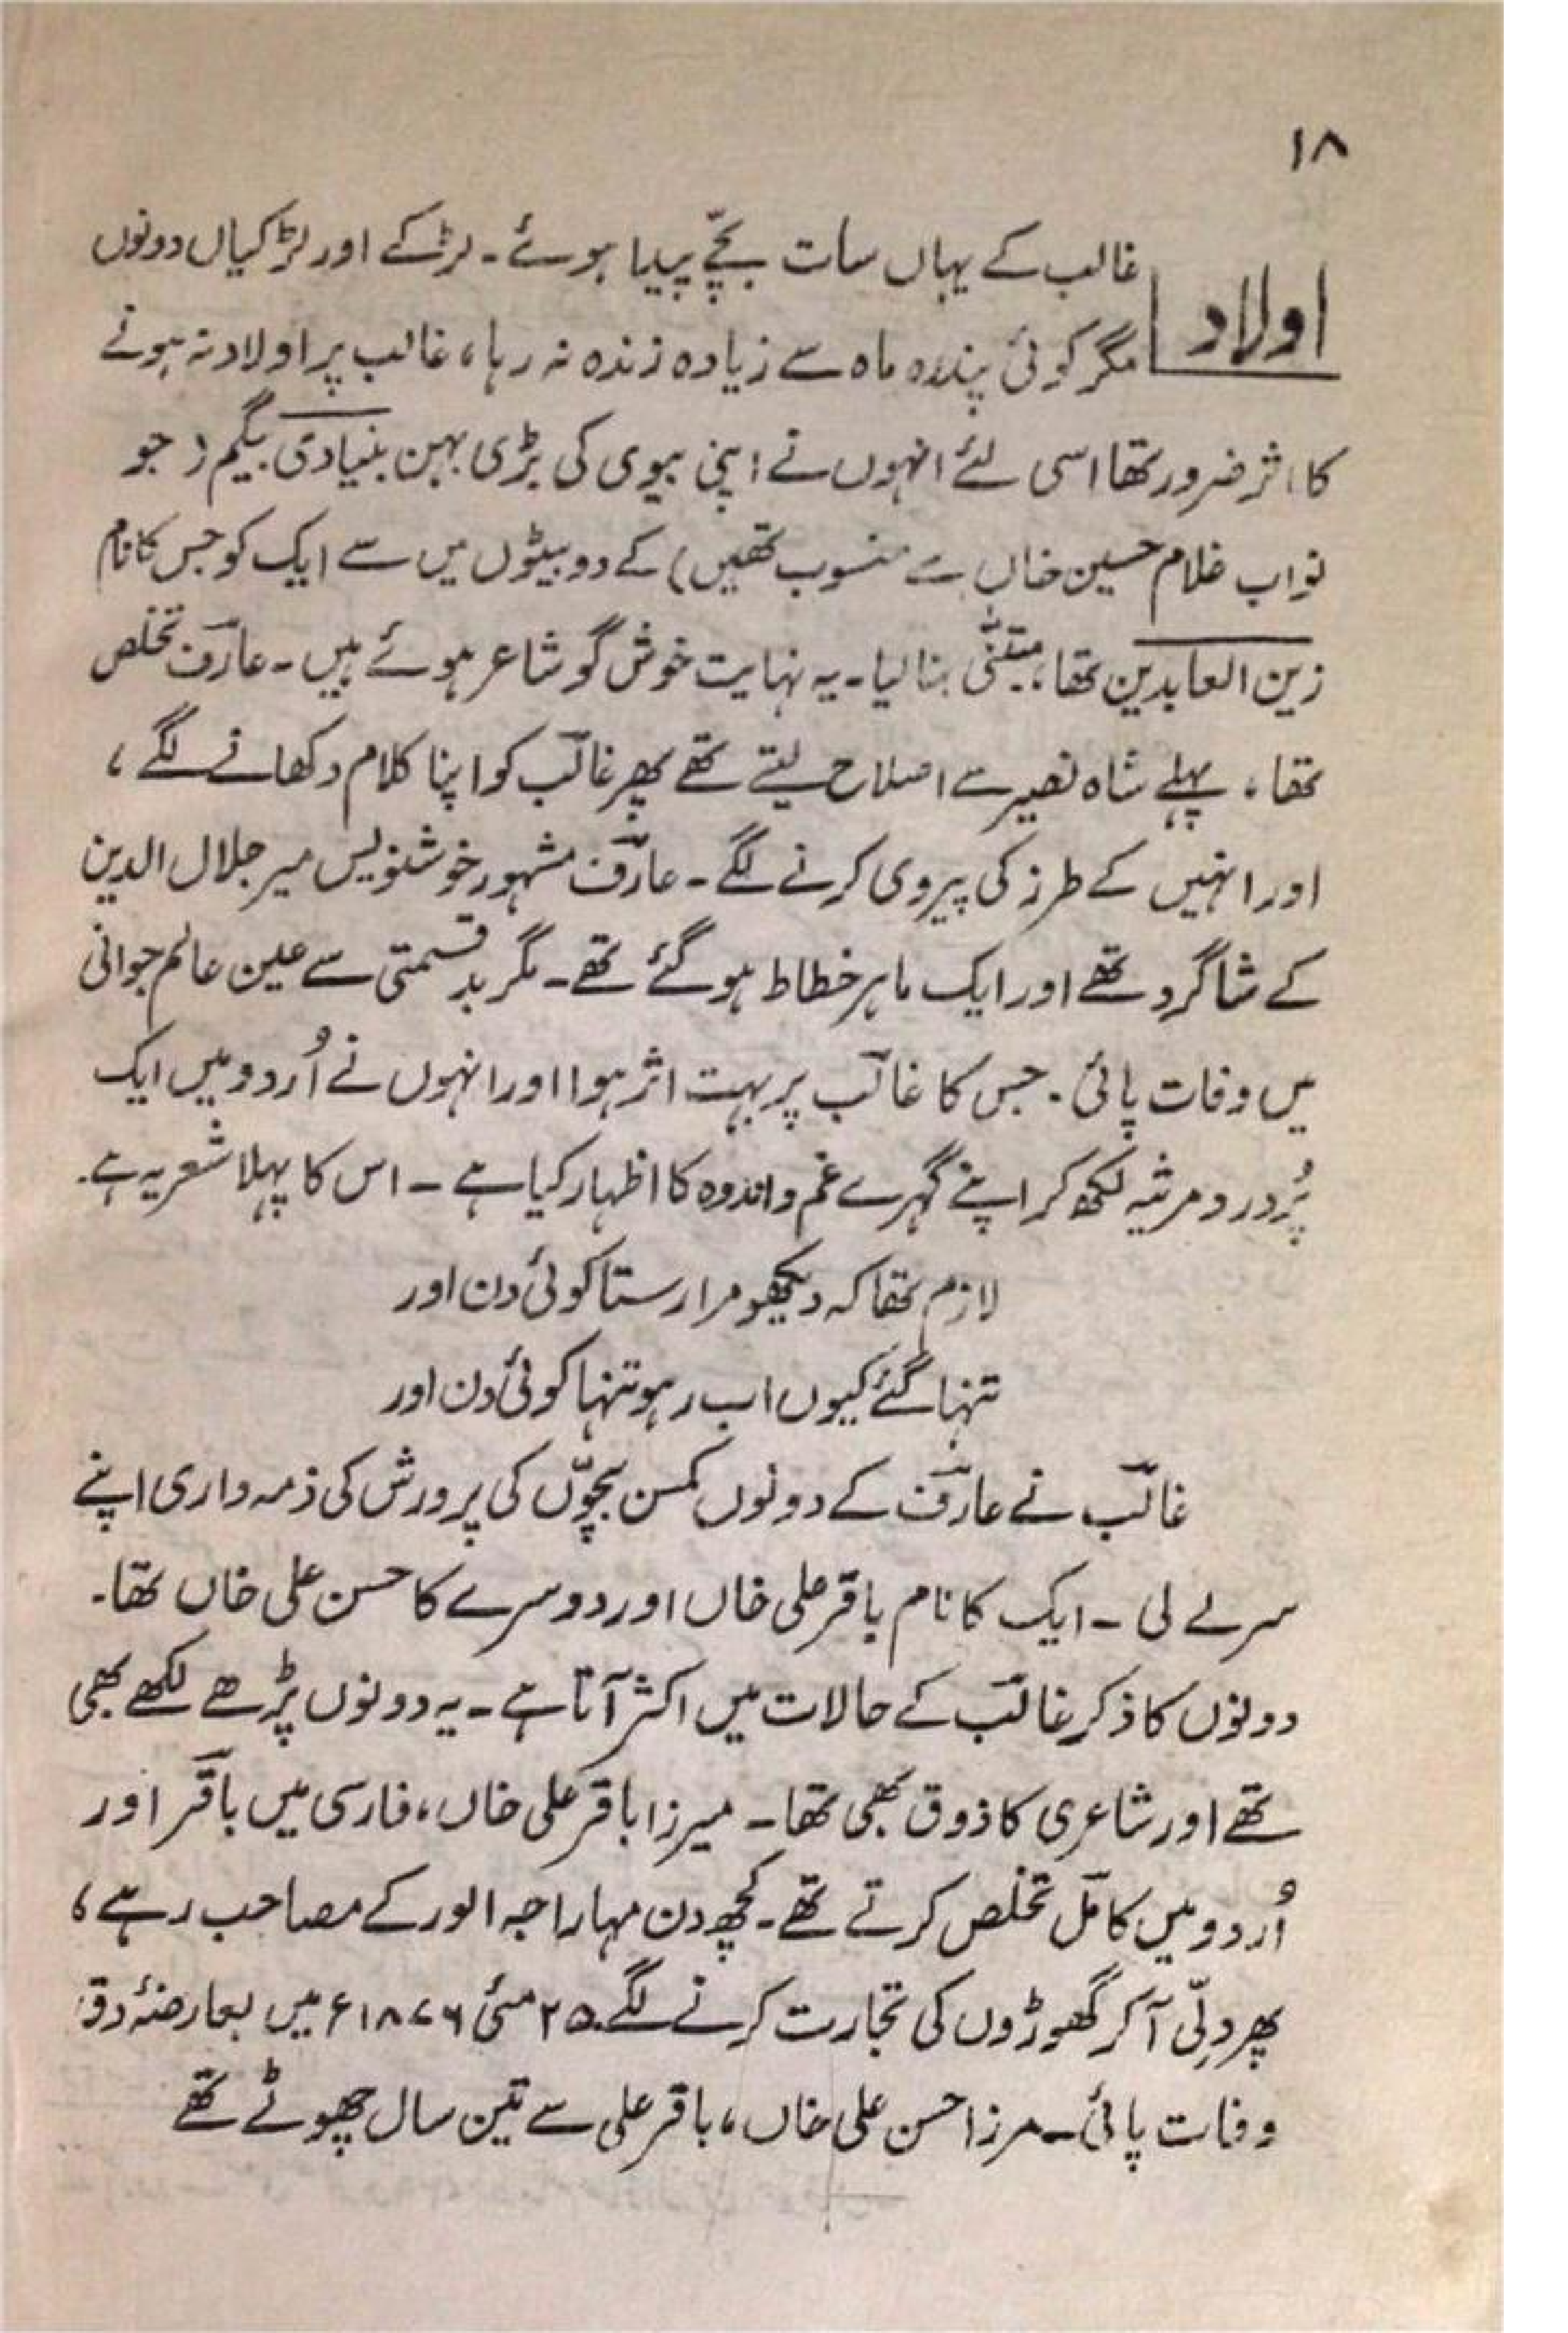 ۱۸
اولاد
غالب کے یہاں سات بچّے پیدا ہوئے۔ لڑکے اور لڑکیاں دونوں
مگر کوئی پندرہ ماہ سے زیادہ زندہ نہ رہا، غالب پر اولاد نہ ہونے
کا اثر ضرور تھا اسی لئے انہوں نے اپنی بیوی کی بڑی بہن بنیادی بیگم (جو
نواب غلام حسین خاں سے منسوب تھیں) کے دو بیٹوں میں سے ایک کو جس کا نام
زین العابدین تھا، متبنّٰی بنا لیا۔ یہ نہایت خوش گو شاعر ہوئے ہیں۔ عارؔف تخلص
تھا، پہلے شاہ نصیر سے اصلاح لیتے تھے پھر غالبؔ کو اپنا کلام دکھانے لگے،
اور انہیں کے طرز کی پیروی کرنے لگے۔ عارؔف مشہور خوشنویس میر جلال الدین
کے شاگرد تھے اور ایک ماہر خطاط ہو گئے تھے۔ مگر بدقسمتی سے عین عالم جوانی
میں وفات پائی۔ جس کا غالبؔ پر بہت اثر ہوا اور انہوں نے اُردو میں ایک
پُر درد مرثیہ لکھ کر اپنے گہرے غم و اندوہ کا اظہار کیا ہے۔ اس کا پہلا شعر یہ ہے۔
لازم تھا کہ دیکھو مرا رستا کوئی دن اور
تنہا گئے کیوں اب رہو تنہا کوئی دن اور
غالبؔ نے عارؔف کے دونوں کمسن بچّوں کی پرورش کی ذمہ داری اپنے
سر لے لی۔ ایک کا نام باقر علی خاں اور دوسرے کا حسن علی خاں تھا۔
دونوں کا ذکر غالبؔ کے حالات میں اکثر آتا ہے۔ یہ دونوں پڑھے لکھے بھی
تھے اور شاعری کا ذوق بھی تھا۔ میرزا باقر علی خاں، فارسی میں باقؔر اور
اُردو میں کاملؔ تخلص کرتے تھے۔ کچھ دن مہاراجہ الور کے مصاحب رہے،
پھر دلّی آ کر گھوڑوں کی تجارت کرنے لگے۔ ۲۵ مئی ۱۸۷۶ء میں بعارضۂ دق
وفات پائی۔ مرزا حسن علی خاں، باقر علی سے تین سال چھوٹے تھے